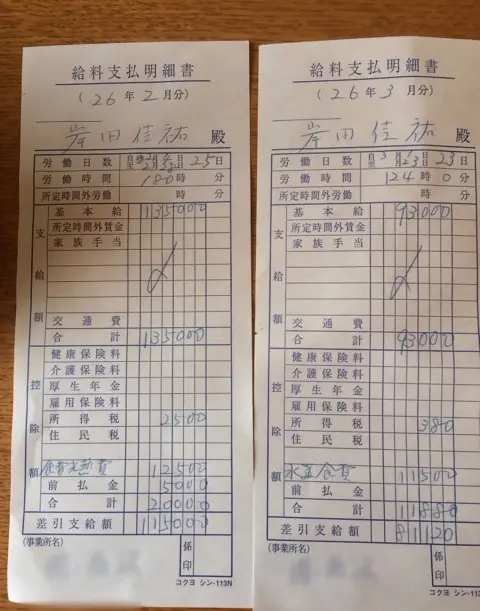 給料支払明細書
(26年2月分)
岸田佳祐 殿
労働日数 自 月 日 至 月 日 25日
労働時間 180時 分
所定時間外労働 時 分
支給額
基本給 135000
所定時間外賃金
家族手当
交通費
合計 135000
控除額
健康保険料
介護保険料
厚生年金
雇用保険料
所得税 2500
住民税
12500
前払金 5000
合計 20000
差引支給額 115000
(事業所名)
係印
コクヨ シン-113N
給料支払明細書
(26年3月分)
岸田佳祐 殿
労働日数 自3月 日 至 月23日 23日
労働時間 124時0分
所定時間外労働 時 分
支給額
基本給 93000
所定時間外賃金
家族手当
交通費
合計 93000
控除額
健康保険料
介護保険料
厚生年金
雇用保険料
所得税 380
住民税
水道食費 11500
前払金
合計 11880
差引支給額 81120
(事業所名)
係印
コクヨ シン-113